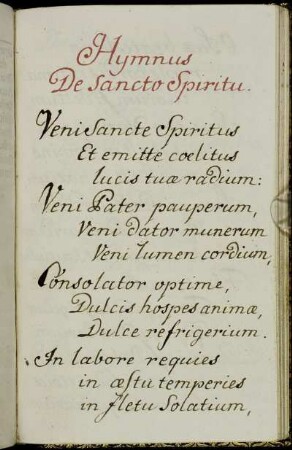 Hymnus
De Sancto Spiritu.
Veni Sancte Spiritus
Et emitte coelitus
lucis tuæ radium:
Veni Pater pauperum,
Veni dator munerum
Veni lumen cordium,
Consolator optime,
Dulcis hospes animæ,
Dulce refrigerium.
In labore requies
in æstu temperies
in fletu Solatium,